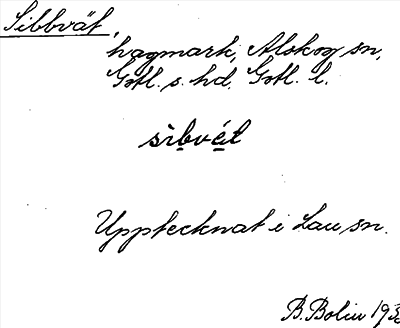 Sibbvät,
hagmark, Alskog sn,
Gotl. s. hd. Gotl. l.
sìbvét
Upptecknat i Lau sn.
B. Bolin